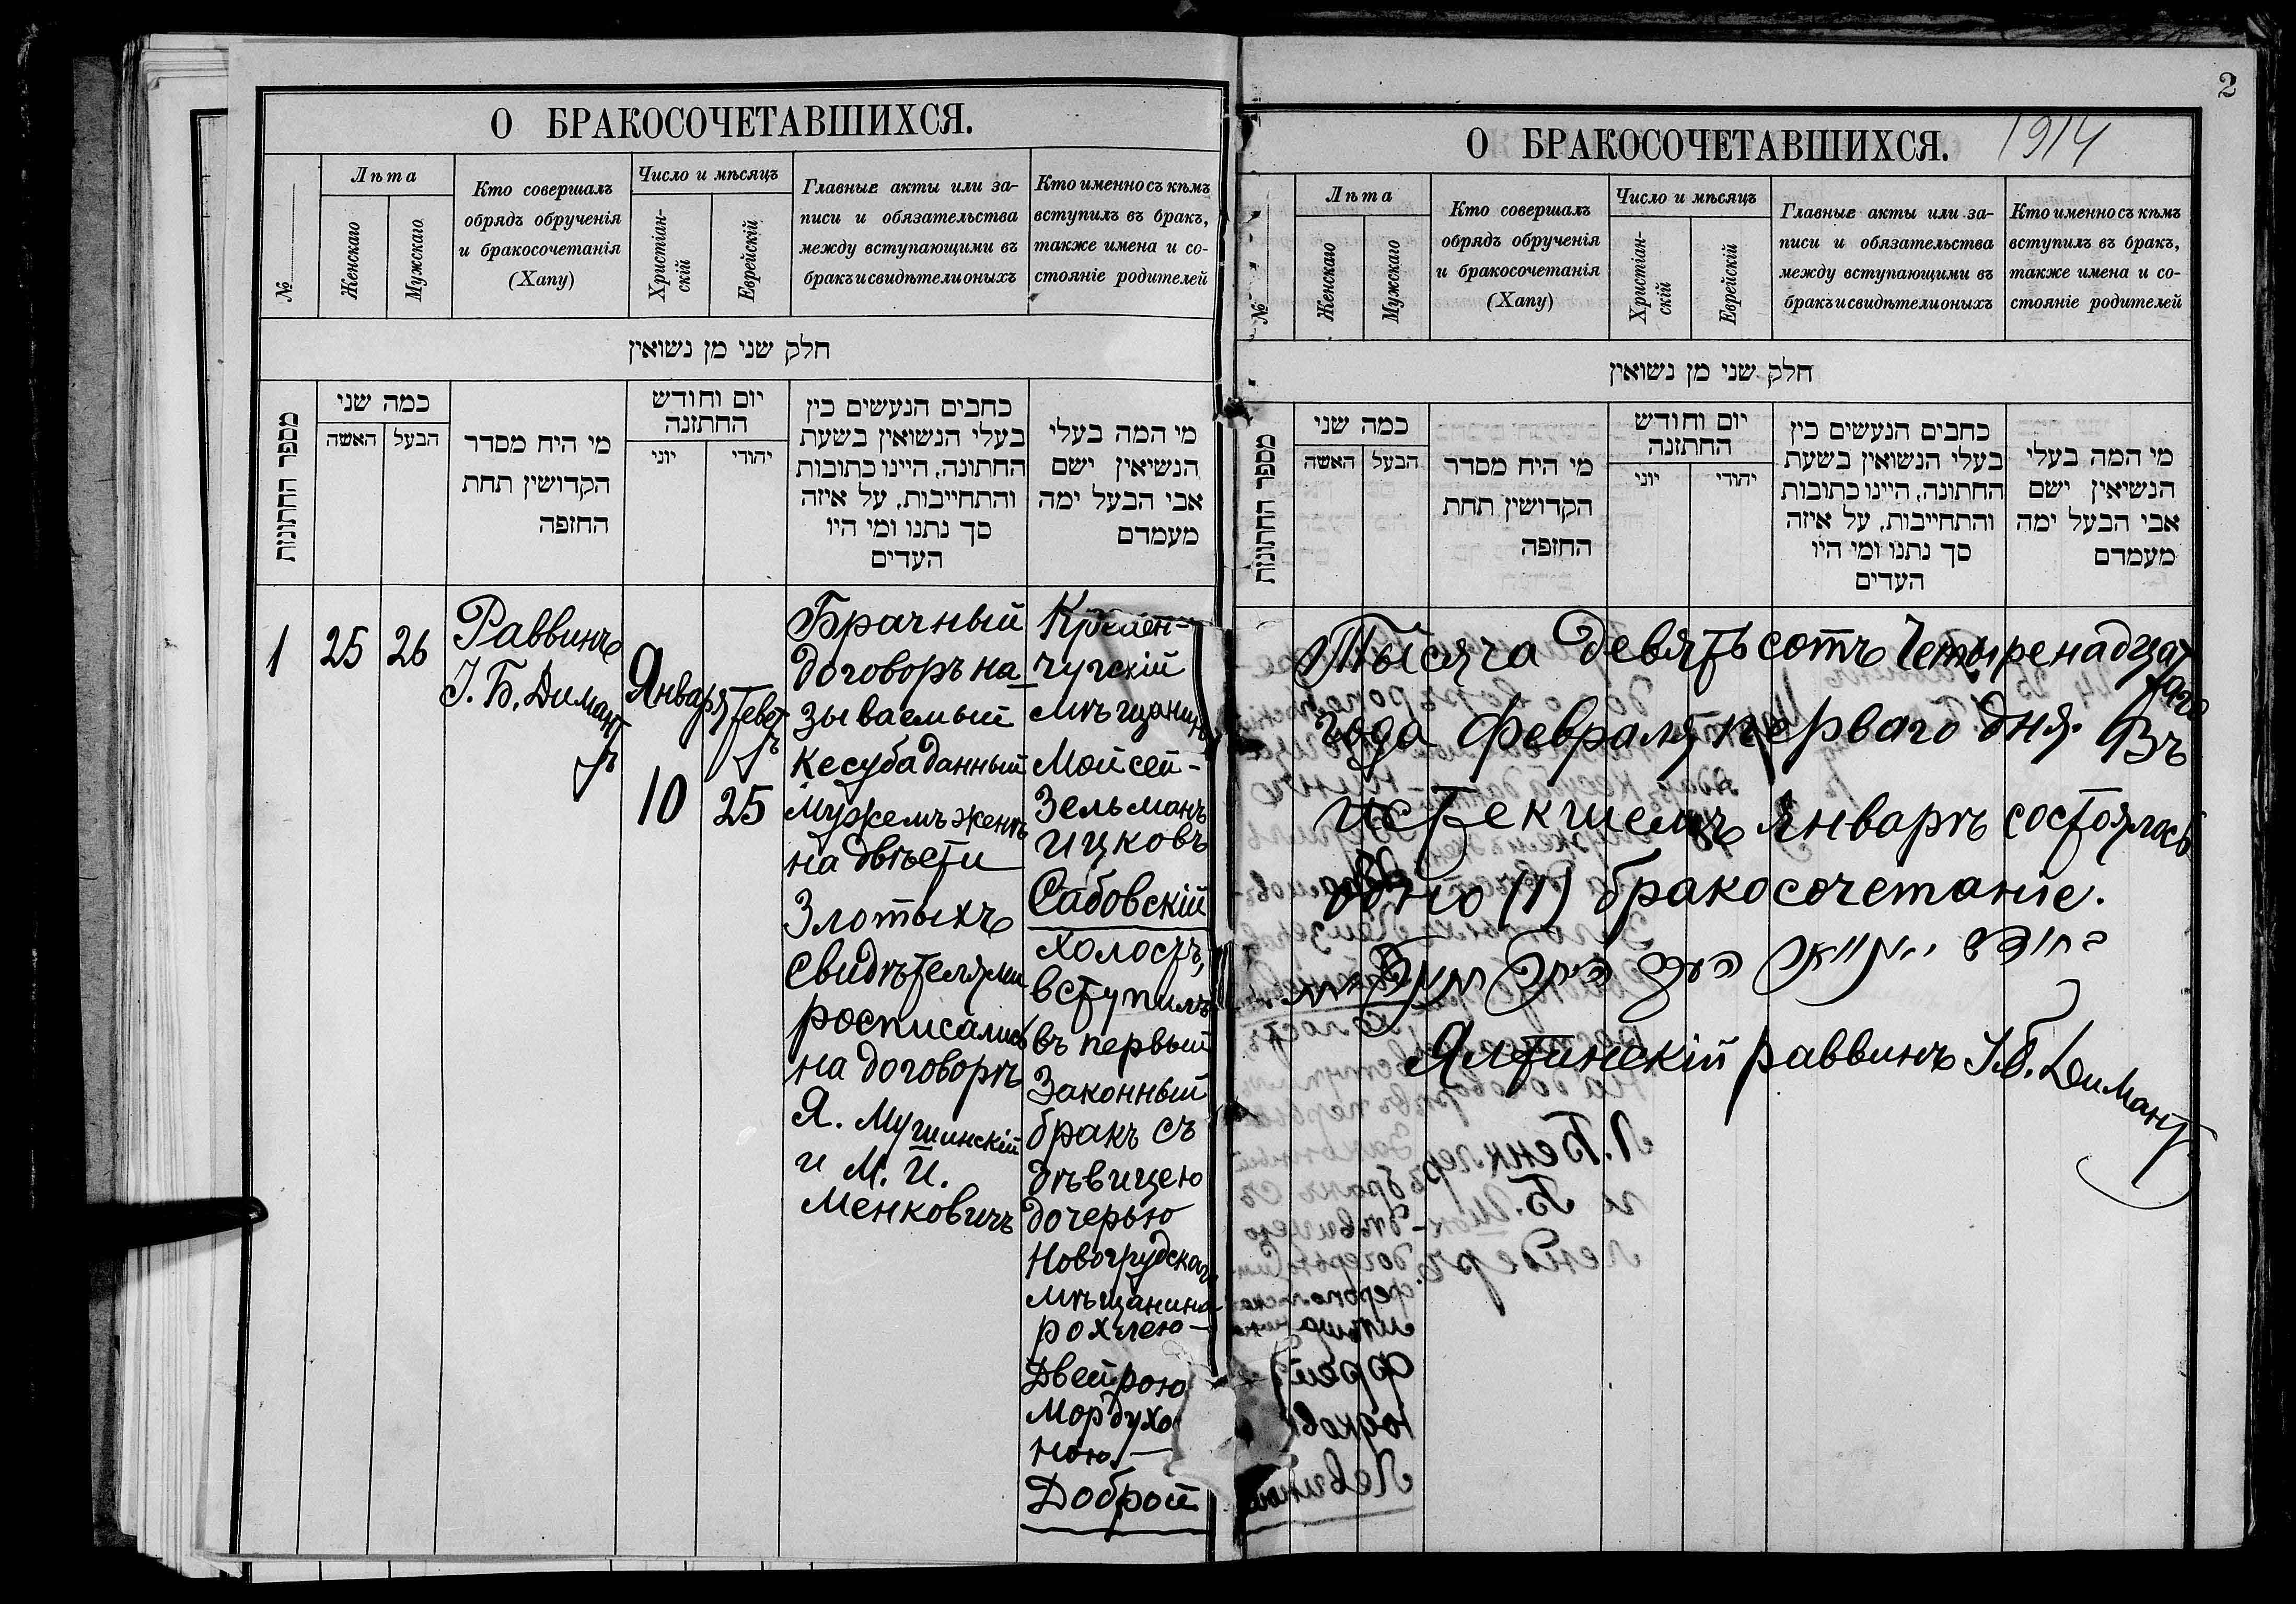 О БРАКОСОЧЕТАВШИХСЯ.
№
Лѣта
Женскаго
Мужскаго
Кто совершалъ
обрядъ обрученія
и бракосочетанія
(Хапу)
Число и мѣсяцъ
Христіан-
скій
Еврейскій
Главные акты или за-
писи и обязательства
между вступающими въ
бракъ и свидѣтели оныхъ
Кто именно съ кѣмъ
вступилъ въ бракъ,
также имена и со-
стояніе родителей
חלק שני מן נשואין
מספר החתונות
כמה שני
האשה
הבעל
מי היח מסדר
הקדושין תחת
החזפה
יום וחודש
החתזנה
יוני
יהודי
כחבים הנעשים כין
בעלי הנשואין בשעת
החתונה, היינו כתובות
והתחייבות, על איזה
סך נתנו ומי היו
העדים
מי המה בעלי
הנשיאין ישם
אבי הבעל ימה
מעמדם
1
25
26
Раввинъ
І. Б. Димантъ
Января
10
Теветъ
25
Брачный
договоръ на-
зываемый
кесуба данный
мужемъ женѣ
на двѣсти
Злотыхъ
Свидѣтелями
росписались
на договорѣ
Я. Мушинскій
и М. И.
Менковичъ
Кремен-
чугскій
мѣщанинъ
Мойсей-
Зельманъ
Ицковъ
Сабовскій
холостъ,
вступилъ
въ первый
Законный
бракъ съ
дѣвицею
дочерью
Новогрудскаго
мѣщанина
рохлею-
Двейрою
Мордухо
ною-
Доброй
2
О БРАКОСОЧЕТАВШИХСЯ. 1914
№
Лѣта
Женскаго
Мужскаго
Кто совершалъ
обрядъ обрученія
и бракосочетанія
(Хапу)
Число и мѣсяцъ
Христіан-
скій
Еврейскій
Главные акты или за-
писи и обязательства
между вступающими въ
бракъ и свидѣтели оныхъ
Кто именно съ кѣмъ
вступилъ въ бракъ,
также имена и со-
стояніе родителей
חלק שני מן נשואין
מספר החתונות
כמה שני
האשה
הבעל
מי היח מסדר
הקדושין תחת
החזפה
יום וחודש
החתזנה
יוני
יהודי
כחבים הנעשים כין
בעלי הנשואין בשעת
החתונה, היינו כתובות
והתחייבות, על איזה
סך נתנו ומי היו
העדים
מי המה בעלי
הנשיאין ישם
אבי הבעל ימה
מעמדם
Тысяча девятьсотъ Четыренадцатаго
года февраля перваго дня. Въ
истекшемъ Январѣ состоялось
одно (1) бракосочетаніе.
Ялтинскій раввинъ І.Б. Димантъ